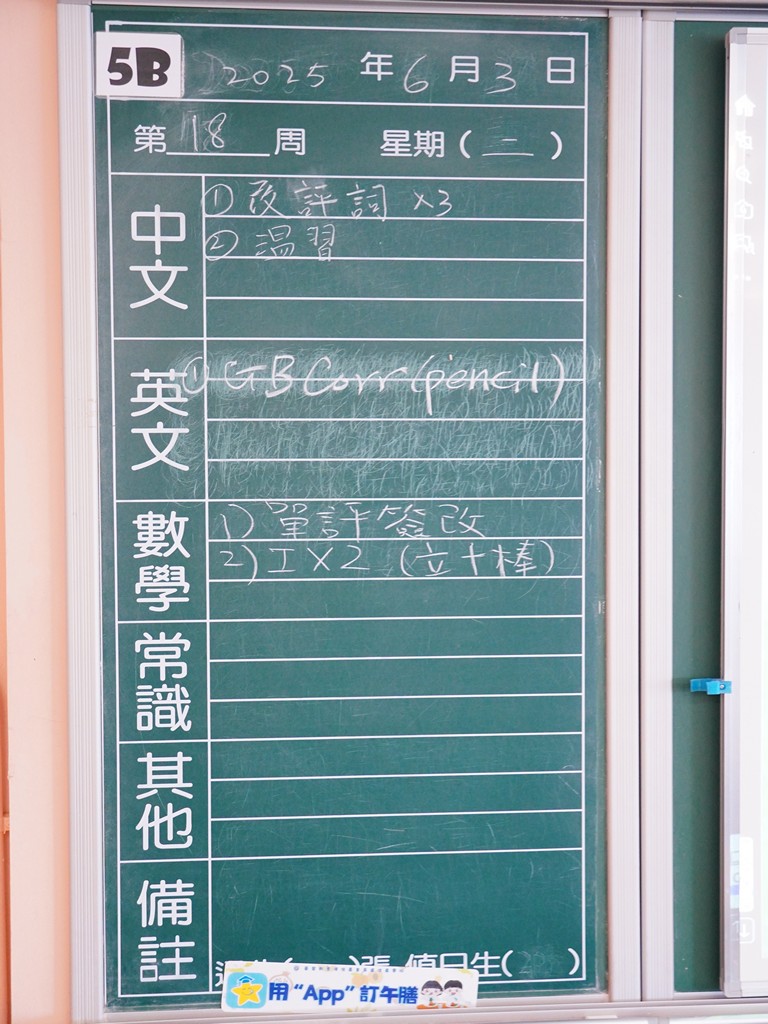 5B
2025 年 6 月 3 日
第 18 周 星期 ( 二 )
中文
① 改評詞 ×3
② 温習
英文
① GB Corr (pencil)
數學
1) 單評簽改
2) 工 × 2 (立 + 棒)
常識
其他
備註
( ) 張 值日生 ( )
用 “App” 訂午膳